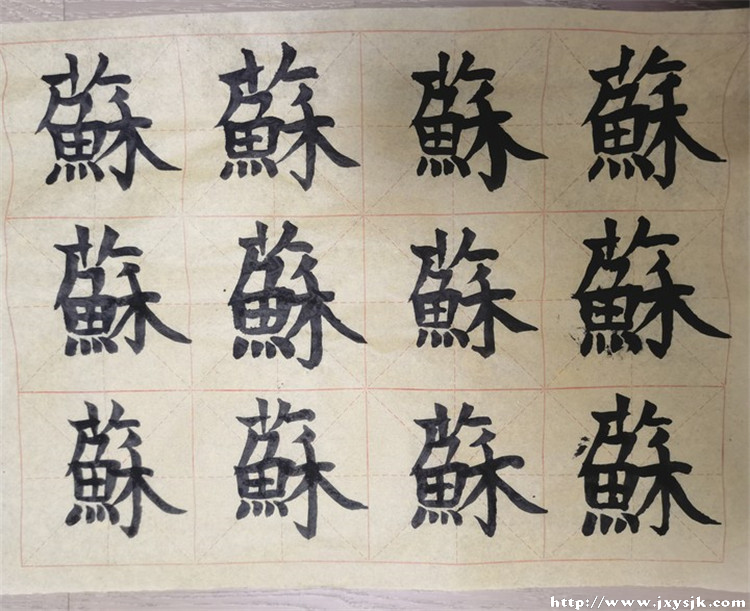 蘇 蘇 蘇 蘇
蘇 蘇 蘇 蘇
蘇 蘇 蘇 蘇
http://www.jxysjk.com